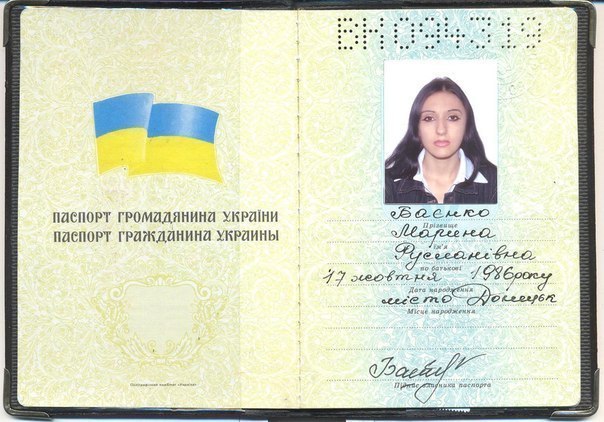 ПАСПОРТ ГРОМАДЯНИНА УКРАЇНИ
ПАСПОРТ ГРАЖДАНИНА УКРАИНЫ
ВМ094319
Баєнко
Прізвище
Марина
Ім'я
Русланівна
по батькові
17 жовтня 1986 року
Дата народження
місто Донецьк
Місце народження
Підпис власника паспорта